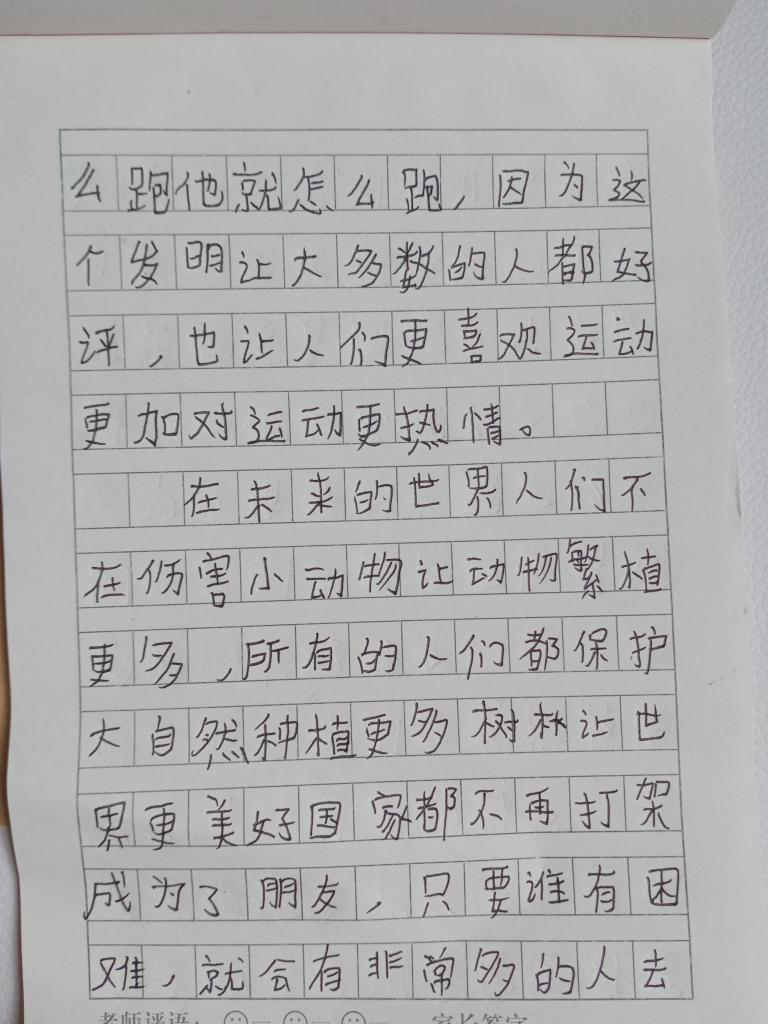 么跑他就怎么跑，因为这
个发明让大多数的人都好
评，也让人们更喜欢运动
更加对运动更热情。
在未来的世界人们不
在伤害小动物让动物繁植
更多，所有的人们都保护
大自然种植更多树林让世
界更美好国家都不再打架
成为了朋友，只要谁有困
难，就会有非常多的人去
老师评语：
家长签字